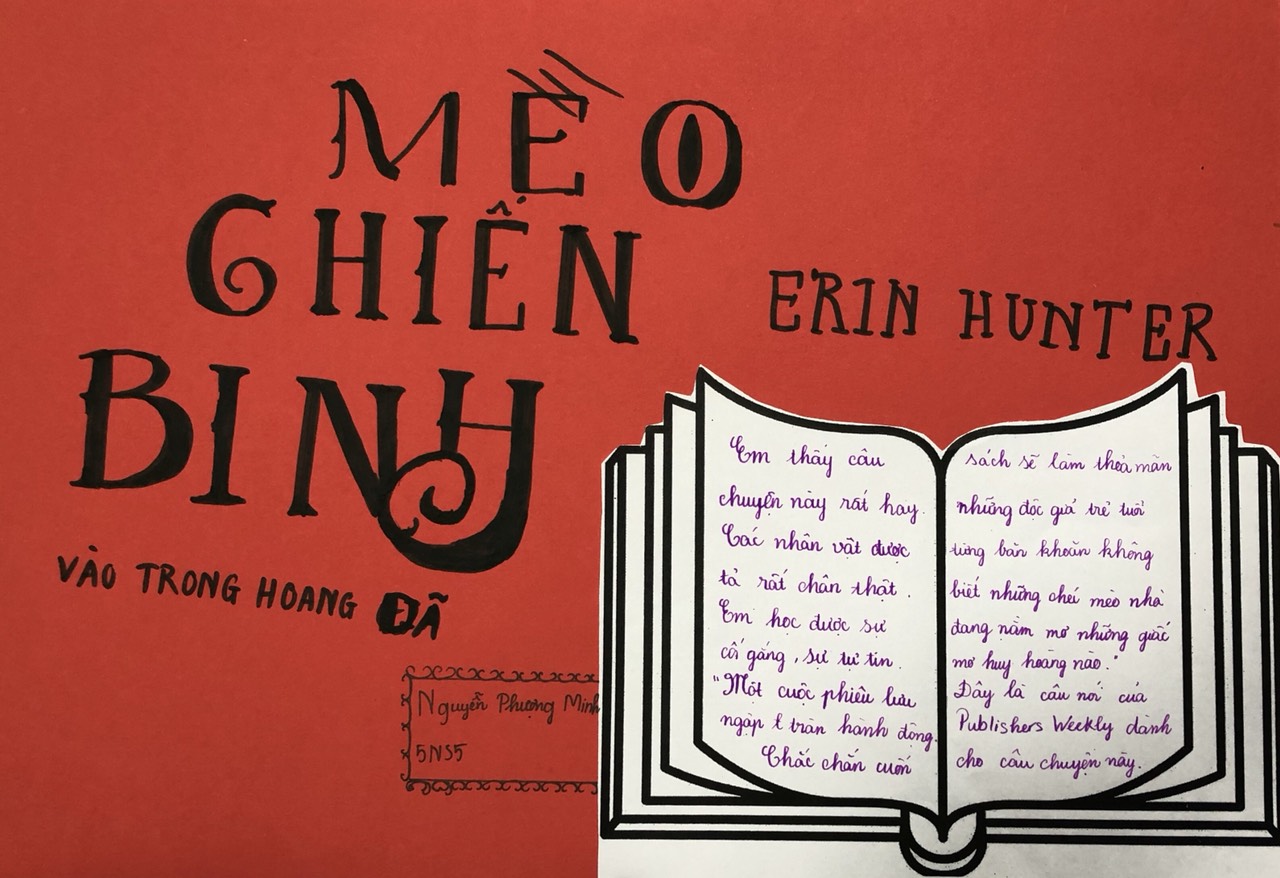 MÈO
CHIẾN
BINH
ERIN HUNTER
VÀO TRONG HOANG DÃ
Nguyễn Phương Minh
5NS5
Em thấy câu
chuyện này rất hay.
Các nhân vật được
tả rất chân thật.
Em học được sự
cố gắng, sự tự tin.
"Một cuộc phiêu lưu
ngập tràn hành động.
Chắc chắn cuốn
sách sẽ làm thoả mãn
những độc giả trẻ tuổi
từng băn khoăn không
biết những chú mèo nhà
đang nằm mơ những giấc
mơ huy hoàng nào."
Đây là câu nói của
Publishers Weekly dành
cho câu chuyện này.